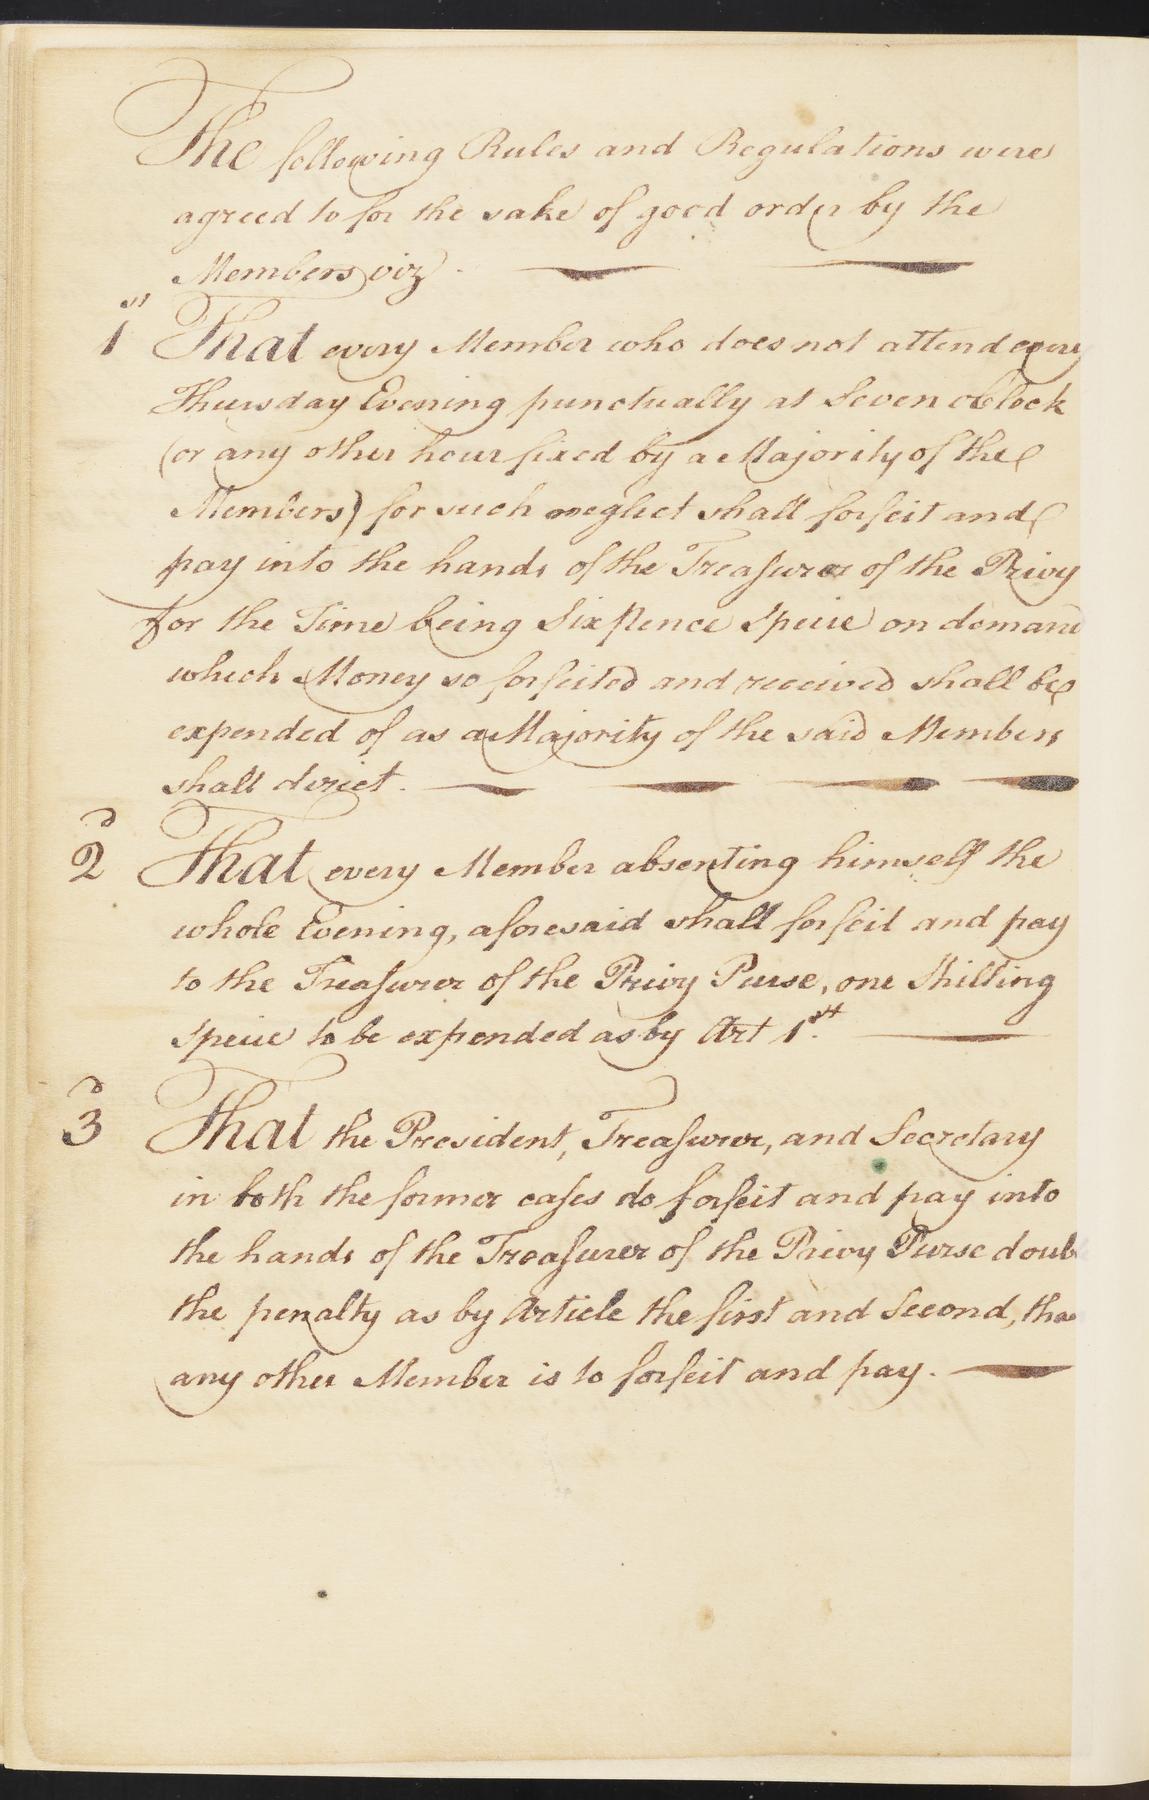 The following Rules and Regulations were
agreed to for the sake of good order by the
Members viz
1st That every Member who does not attend every
Thursday Evening punctually at Seven oClock
(or any other hour fixed by a Majority of the
Members) for such neglect shall forfeit and
pay into the hands of the Treasurer of the Privy
for the Time being Six Pence Specie on demand
which Money so forfeited and received shall be
expended of as a Majority of the said Members
shall direct.
2d That every Member absenting himself the
whole Evening, aforesaid shall forfeit and pay
to the Treasurer of the Privy Purse, one Shilling
Specie to be expended as by Art 1st.
3d That the President, Treasurer, and Secretary
in both the former cases do forfeit and pay into
the hands of the Treasurer of the Privy Purse doub
the penalty as by Article the first and Second, tha
any other Member is to forfeit and pay.